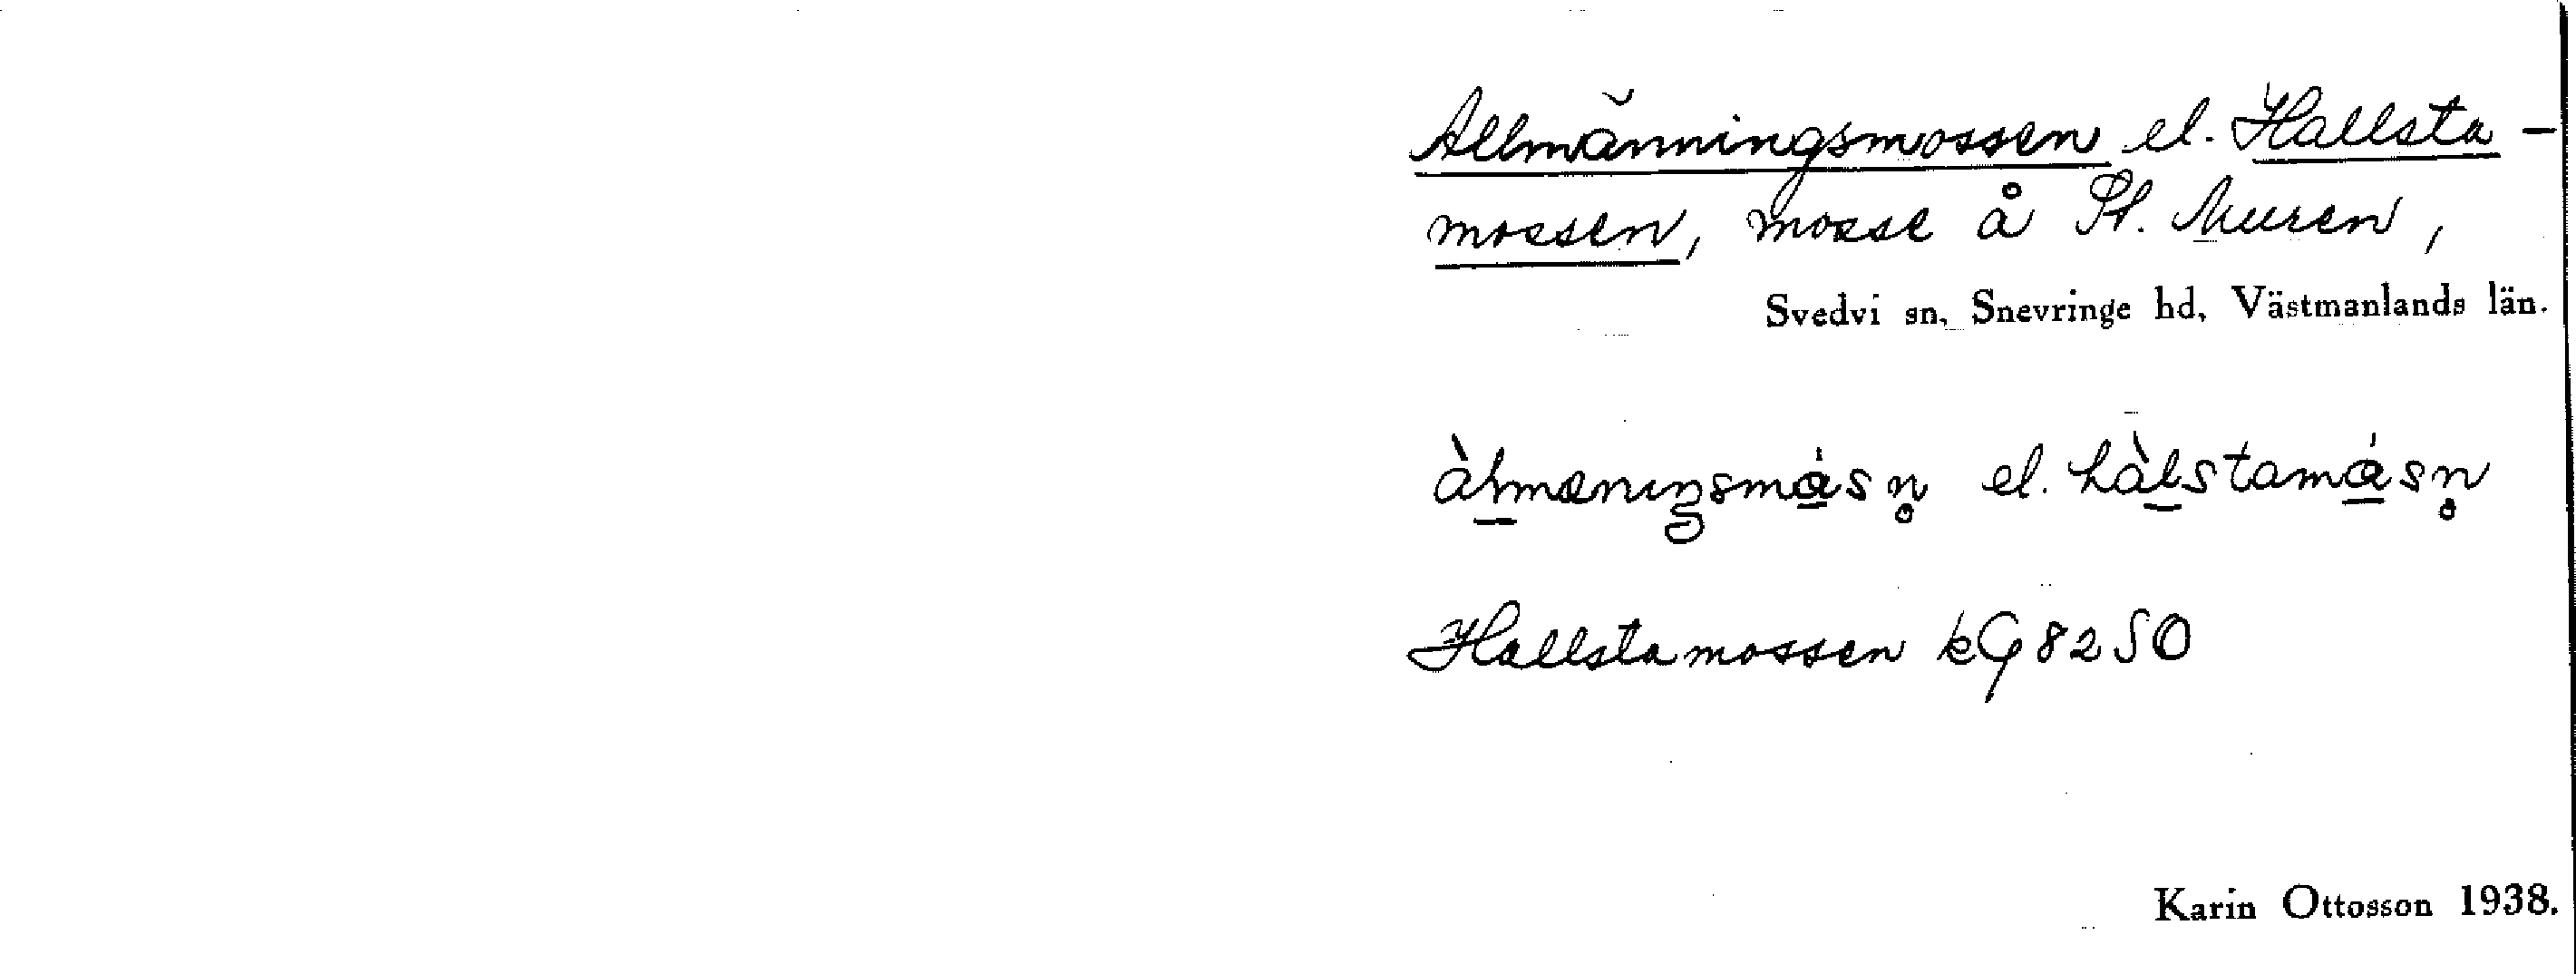 Allmänningsmossen el. Hallsta-
mossen, mosse å St. Muren,
Svedvi sn, Snevringe hd, Västmanlands län.
el.
Hallstamossen kG 82 SO
Karin Ottosson 1938.